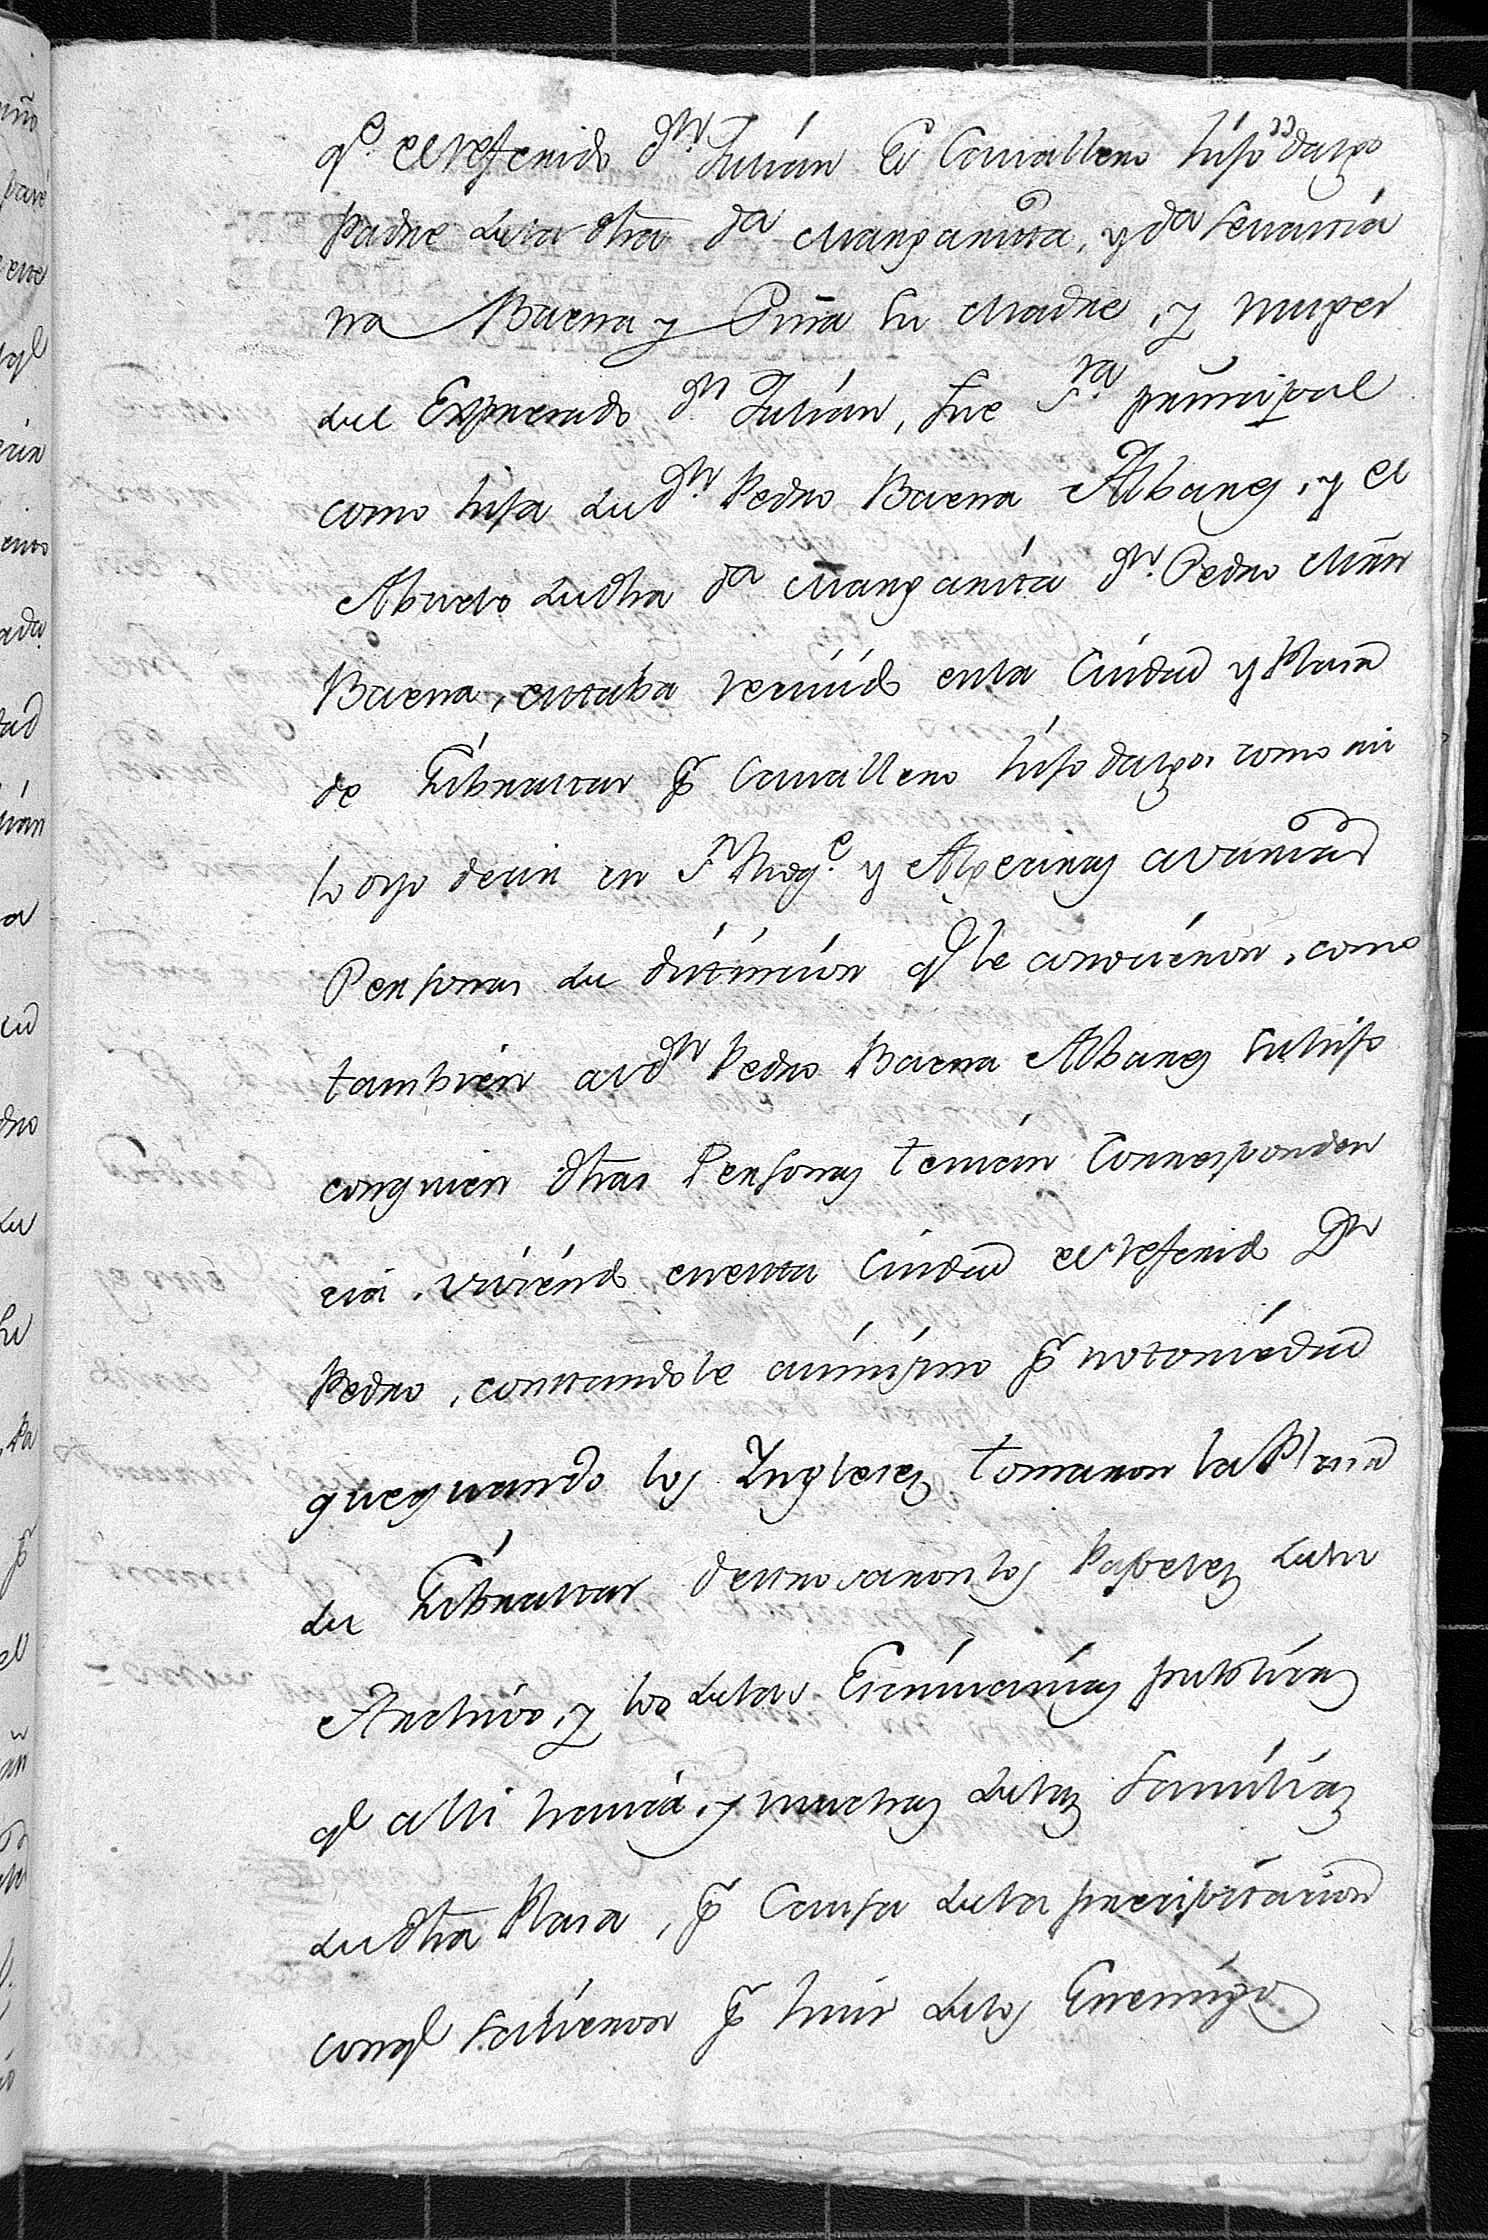 qe. el referido Dn. Julián es Cavallero hijo dalgo
Padre de la dha Da Margarita, y Da Sevastia
na Baena y Piña su Madre, y muger
del Expresado Dn Julián, fue Sra. principal
como hija de Dn. Pedro Baena Albanes, y el
Abuelo de dha Da Margarita Dn. Pedro Mrn
Baena, estaba resivido en la Ciudad y Plasa
de Gibraltar pr Cavallero hijo dalgo, como así
lo oyó desir en Sn Roqe. y Algeciras a varias
Personas de distinsion ql le conosieron, como
tambien a Dn Pedro Baena Albanes su hijo
con quien dhas Personas tenian Corresponden
cia, viviendo en esta Ciudad el referido Dn
Pedro, constandole asimismo pr notoriedad
que quando los Yngleses tomaron la Plasa
de Gibraltar destrosaron los Papeles de su
Archivo, y los de las Escrivanias publicas
ql alli havia, y muchas de las familias
de dha Plasa, pr Causa de la presipitasion
con ql salieron pr huir de los Enemigos